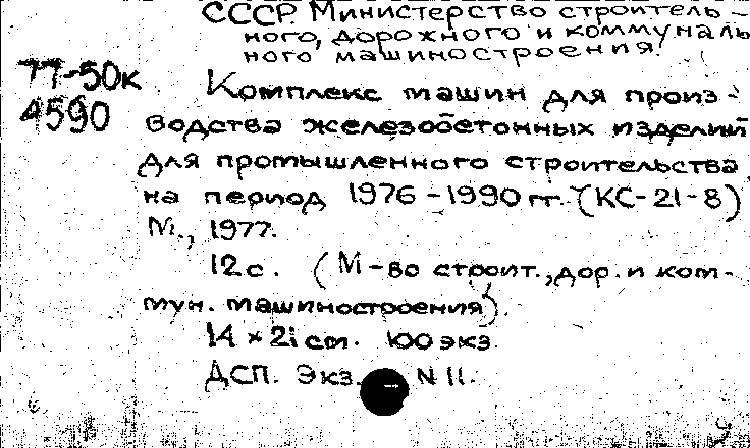 СССР. Министерство строитель-
ного, дорожного и коммуналь
ного машиностроения.
77-50к
4590
Комплекс машин для произ-
водства железобетонных изделий
для промышленного строительства
на период 1976-1990 гг. (КС-21-8)
М., 1977.
12с. (М-во строит., дор. и ком-
мун. машиностроения).
14 х 21 см. 100 экз.
ДСП. Экз. N 11.